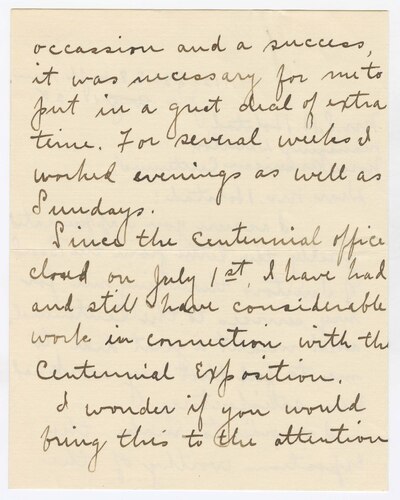 occassion and a success,
it was necessary for me to
put in a great deal of extra
time. For several weeks I
worked evenings as well as
Sundays.
Since the Centennial office
closed on July 1st, I have had
and still have considerable
work in connection with the
Centennial Exposition.
I wonder if you would
bring this to the attention